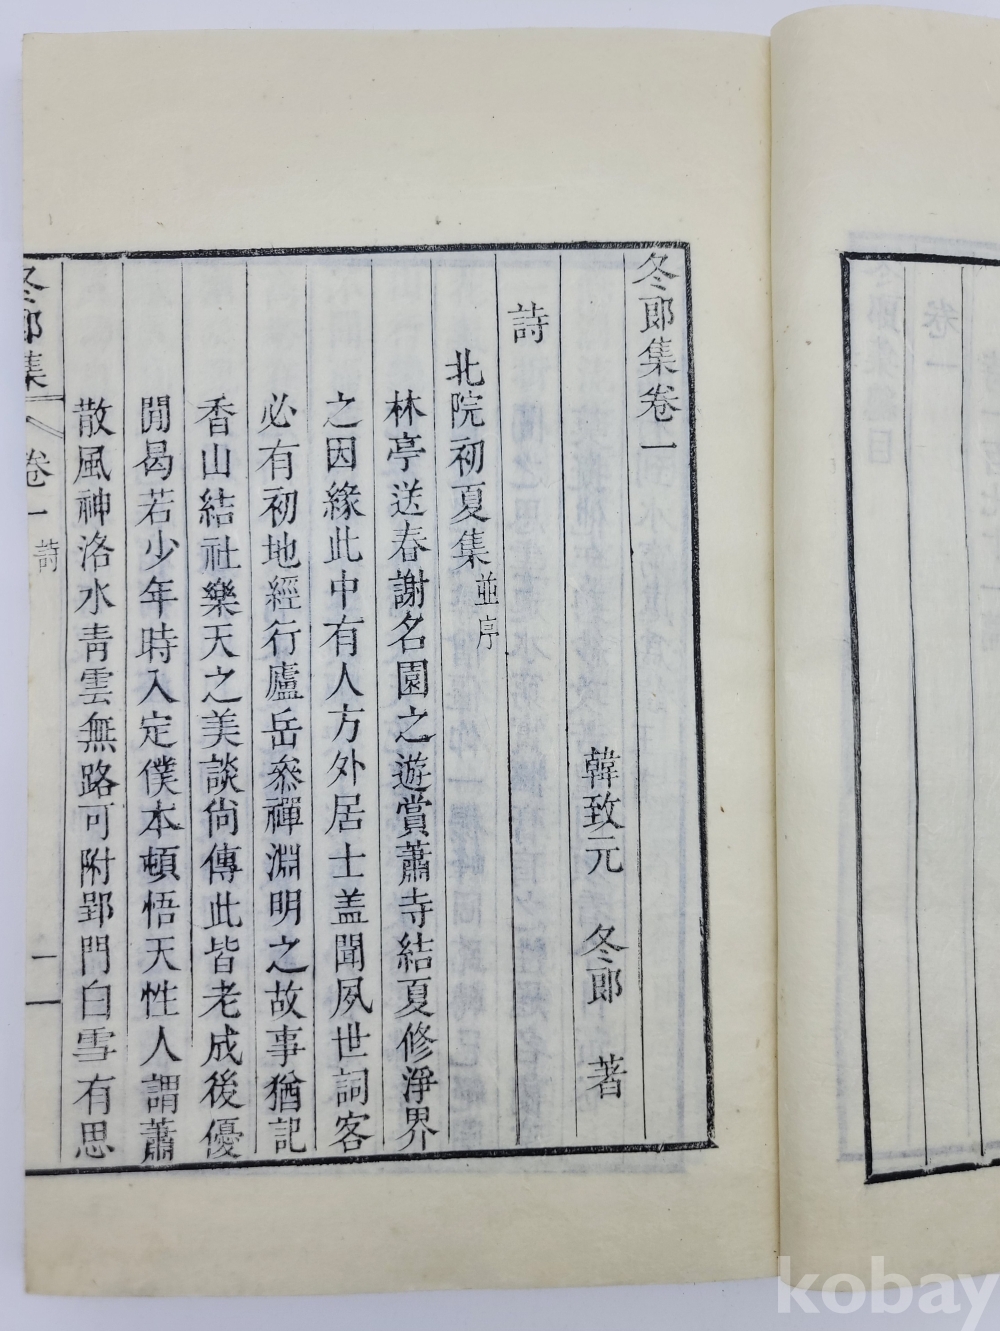 冬郎集卷一
韓致元 冬郎 著
詩
北院初夏集 並序
林亭送春謝名園之遊賞蕭寺結夏修淨界
之因緣此中有人方外居士盖聞夙世詞客
必有初地經行廬岳叅禪淵明之故事猶記
香山結社樂天之美談尙傳此皆老成後優
閒曷若少年時入定僕本頓悟天性人謂蕭
散風神洛水靑雲無路可附郢門白雪有思
冬郎集 卷一 詩 一
kobay